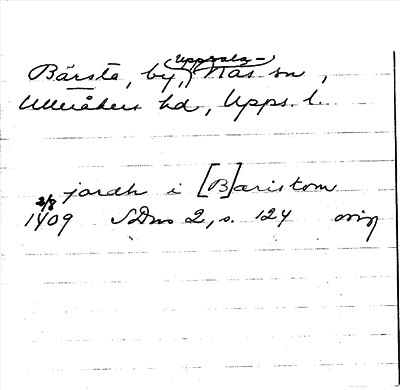 Bärsta, by, Uppsala-Näs sn,
Ulleråkers hd, Upps. l.
jordh i [B]aristom
2/8
1409 SDns 2, s. 124 orig